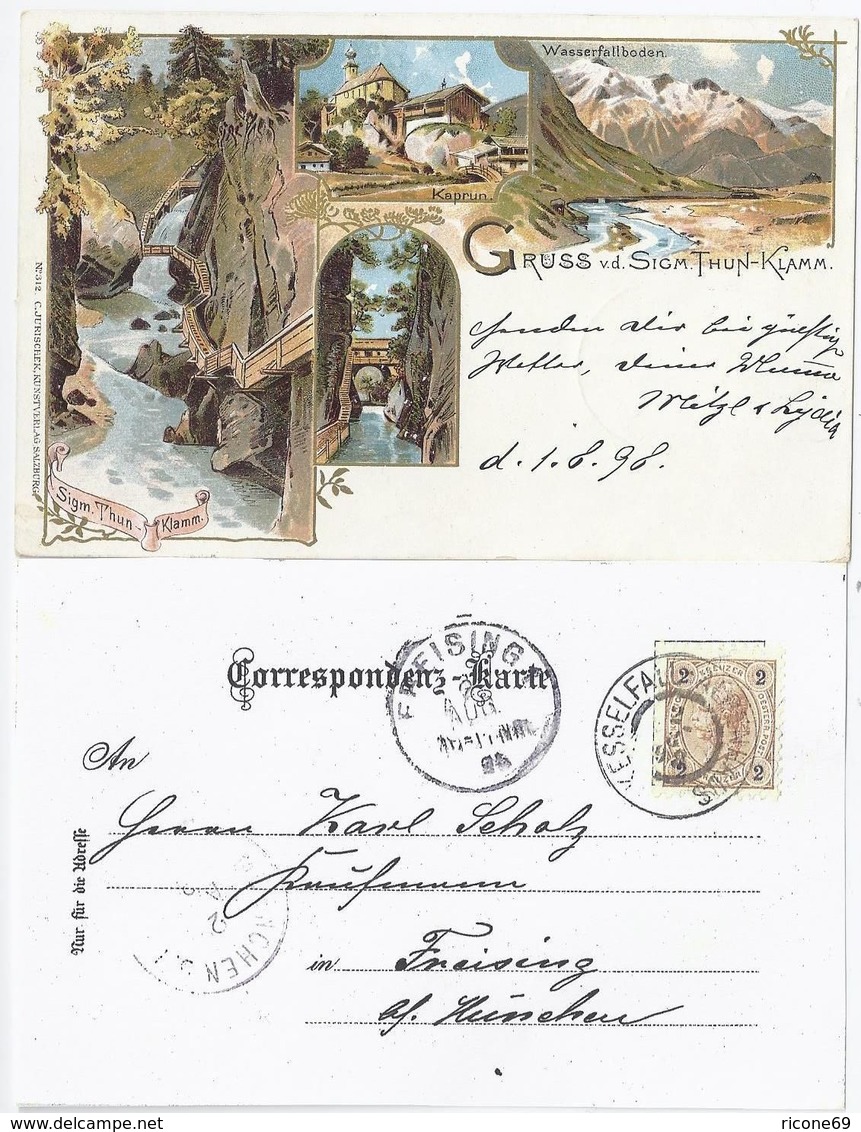 Wasserfallboden.
Kaprun.
GRUSS v.d. SIGM. THUN-KLAMM.
senden Dir bei
Wetter, deine
d. 1.8.98.
Sigm. Thun-Klamm.
No. 312 C. JURISCHEK, KUNSTVERLAG SALZBURG.
Correspondenz-Karte
FREISING
AUG
KESSELFALL
2 2
2 2
An
Herrn Karl Scholz
Kaufmann
in Freising
b/. München
Nur für die Adresse
2
CHEN
ricone69